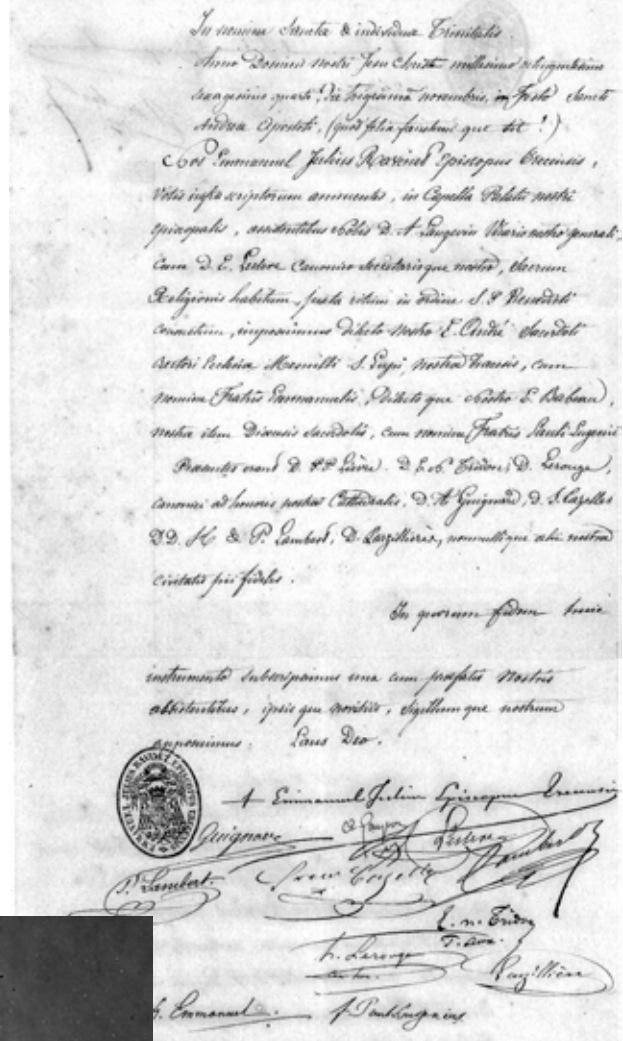 In nomine Sanctæ & individuæ Trinitatis.
Anno Domini nostri Jesu Christi millesimo octingentesimo
sexagesimo quarto, Die trigesimâ novembris, in Festo Sancti
Andreæ Apostoli, (quod felix faustum que sit !)
Nos Emmanuel Julius Ravinet Episcopus Trecensis,
Votis infra scriptorum annuentes, in Capella Palatii nostri
episcopalis, assistentibus Nobis D. A. Langevin Vicario nostro generali,
cum D. E. Leclere Canonico Secretarioque nostro, Sacrum
Religionis habitum, juxta ritum in ordine S. P. Benedicti
consuetum, imposuimus dilecto nostro E. André Sacerdoti
rectori Ecclesiæ Mesnilli S. Lupi, nostræ Diœcesis, cum
nomine Fratris Emmanuelis, Dilecto que Nostro E. Babeau,
nostræ item Diœcesis Sacerdotis, cum nomine Fratris Pauli Eugenii
Præsentes erant D. Lièvre. D. E. N. Tridon, D. Lerouge,
canonici ad honores nostræ Cathedralis, D. A. Guignard, D. S. Cazelles
D.D. H. & P. Lambert, D. Largillière, nonnullique alii nostræ
civitatis pii fideles.
In quorum fidem huic
instrumento subscripsimus una cum præfatis Nostris
assistentibus, ipsis que novitiis, Sigillumque nostrum
apposuimus. Laus Deo.
+ Emmanuel Julius Episcopus Trecensis
Guignard Leclere Lambert
P. Lambert.
E. N. Tridon
h. Lerouge
Largillière
f. Emmanuel. f. Paul Eugenius